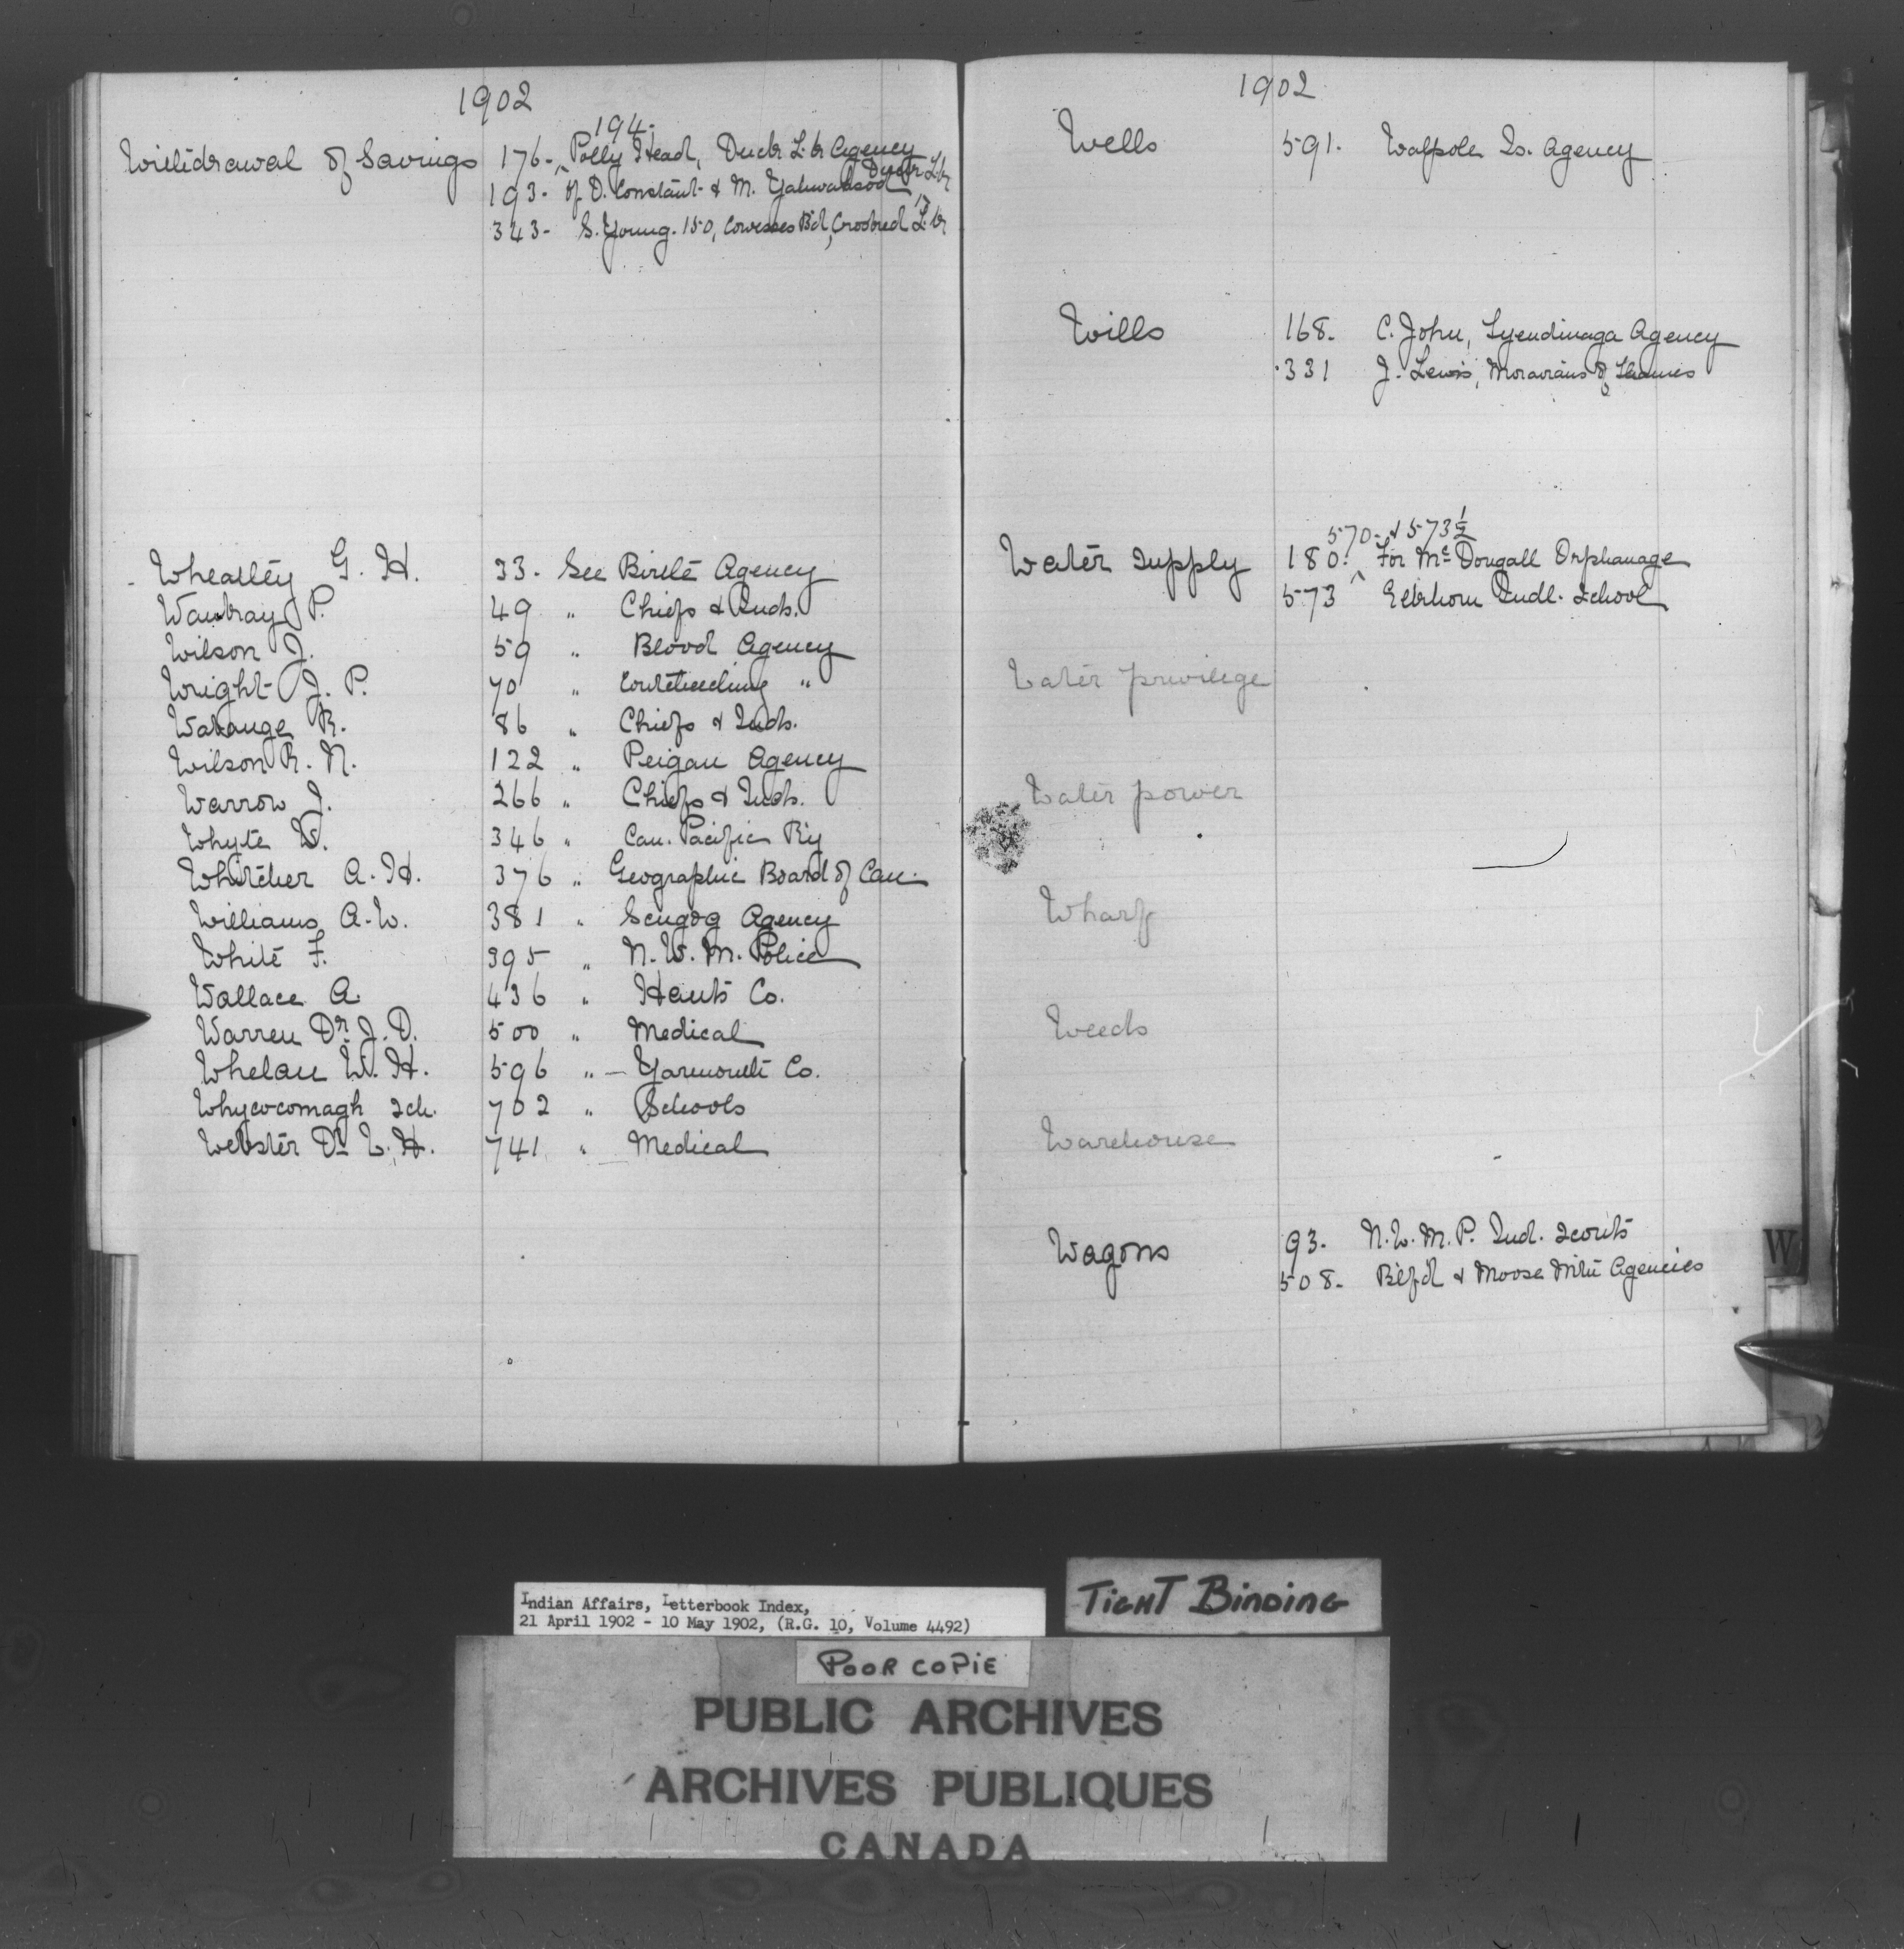 1902
194.
Withdrawal of Savings 176- Polly Head, Duck Lk Agency
193- of D. Constant & M. Duck Lk
343- S. Young. 150, Cowesses Bd, Crooked Lk
Wheatley G. H. 33. See Birtle Agency
P. 49 " Chiefs & Inds.
Wilson J. 59 " Blood Agency
Wright J. P. 70 " Touchwood "
R. 86 " Chiefs & Inds.
Wilson R. N. 122 " Peigan Agency
Warrow J. 266 " Chiefs & Inds.
Whyte W. 346 " Can. Pacific Ry
Whitcher A. H. 376 " Geographic Board of Can.
Williams A. W. 381 " Scugog Agency
White F. 395 " N. W. M. Police
Wallace A. 436 " Hants Co.
Warren Dr. J. D. 500 " Medical
Whelan W. H. 596 " — Yarmouth Co.
Whycocomagh Sch. 702 " Schools
Webster Dr L. H. 741 " Medical
1902
Wells 591. Walpole Is. Agency
Wills 168. C. John, Tyendinaga Agency
331 J. Lewis, Moravians of Thames
570. & 573½
Water Supply 180. For McDougall Orphanage
573 Elkhorn Indl. School
Water privilege
Water power
Wharf
Weeds
Warehouse
Wagons 93. N. W. M. P. Ind. Scouts
508. Btfd & Moose Mtn Agencies
W
Indian Affairs, Letterbook Index,
21 April 1902 - 10 May 1902, (R.G. 10, Volume 4492)
TIGHT BINDING
POOR COPIE
PUBLIC ARCHIVES
ARCHIVES PUBLIQUES
CANADA